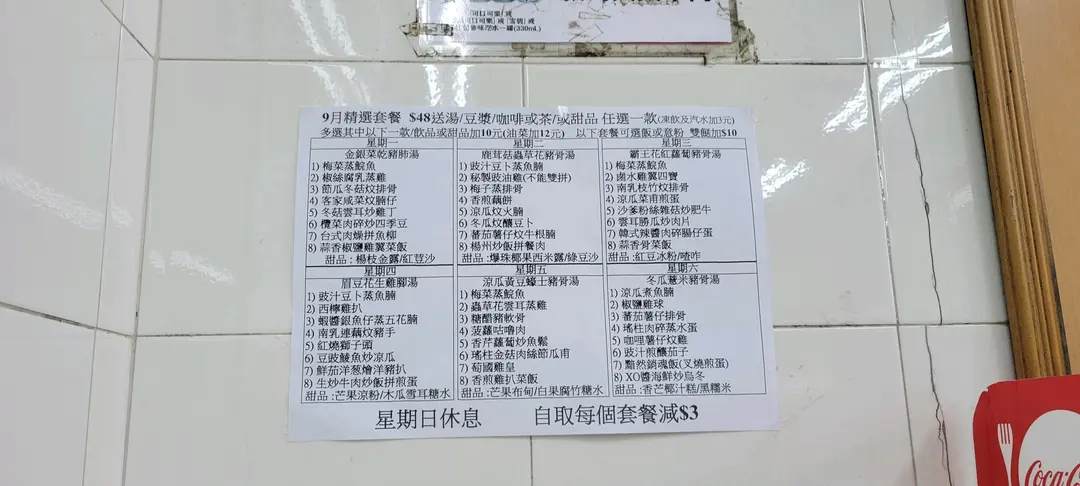 可口可樂」或
「可口可樂」或「雪碧」或
9月精選套餐 $48送湯/豆漿/咖啡或茶/或甜品 任選一款(凍飲及汽水加3元)
多選其中以下一款/飲品或甜品加10元(油菜加12元) 以下套餐可選飯或意粉 雙餸加$10
星期一
金銀菜乾豬肺湯
1) 梅菜蒸鯇魚
2) 椒絲腐乳蒸雞
3) 節瓜冬菇炆排骨
4) 客家咸菜炆腩仔
5) 冬菇雲耳炒雞丁
6) 欖菜肉碎炒四季豆
7) 台式肉燥拼魚柳
8) 蒜香椒鹽雞翼菜飯
甜品 : 楊枝金露/紅荳沙
星期二
鹿茸菇蟲草花豬骨湯
1) 豉汁豆卜蒸魚腩
2) 秘製豉油雞(不能雙拼)
3) 梅子蒸排骨
4) 香煎藕餅
5) 涼瓜炆火腩
6) 冬瓜炆釀豆卜
7) 蕃茄薯仔炆牛根腩
8) 楊州炒飯拼餐肉
甜品 : 爆珠椰果西米露/綠豆沙
星期三
霸王花紅蘿蔔豬骨湯
1) 梅菜蒸鯇魚
2) 鹵水雞翼四寶
3) 南乳枝竹炆排骨
4) 涼瓜菜甫煎蛋
5) 沙爹粉絲雜菇炒肥牛
6) 雲耳勝瓜炒肉片
7) 韓式辣醬肉碎腸仔蛋
8) 蒜香骨菜飯
甜品 : 紅豆冰粉/喳咋
星期四
眉豆花生雞腳湯
1) 豉汁豆卜蒸魚腩
2) 西檸雞扒
3) 蝦醬銀魚仔蒸五花腩
4) 南乳連藕炆豬手
5) 紅燒獅子頭
6) 豆豉鯪魚炒凉瓜
7) 鮮茄洋葱燴洋豬扒
8) 生炒牛肉炒飯拼煎蛋
甜品 : 芒果涼粉/木瓜雪耳糖水
星期五
涼瓜黃豆蠔士豬骨湯
1) 梅菜蒸鯇魚
2) 蟲草花雲耳蒸雞
3) 糖醋豬軟骨
4) 菠蘿咕嚕肉
5) 香芹蘿蔔炒魚鬆
6) 瑤柱金菇肉絲節瓜甫
7) 葡國雞皇
8) 香煎雞扒菜飯
甜品 : 芒果布甸/白果腐竹糖水
星期六
冬瓜薏米豬骨湯
1) 涼瓜煮魚腩
2) 椒鹽雞球
3) 蕃茄薯仔排骨
4) 瑤柱肉碎蒸水蛋
5) 咖哩薯仔炆雞
6) 豉汁煎釀茄子
7) 黯然銷魂飯(叉燒煎蛋)
8) XO醬海鮮炒烏冬
甜品 : 香芒椰汁糕/黑糯米
星期日休息 自取每個套餐減$3